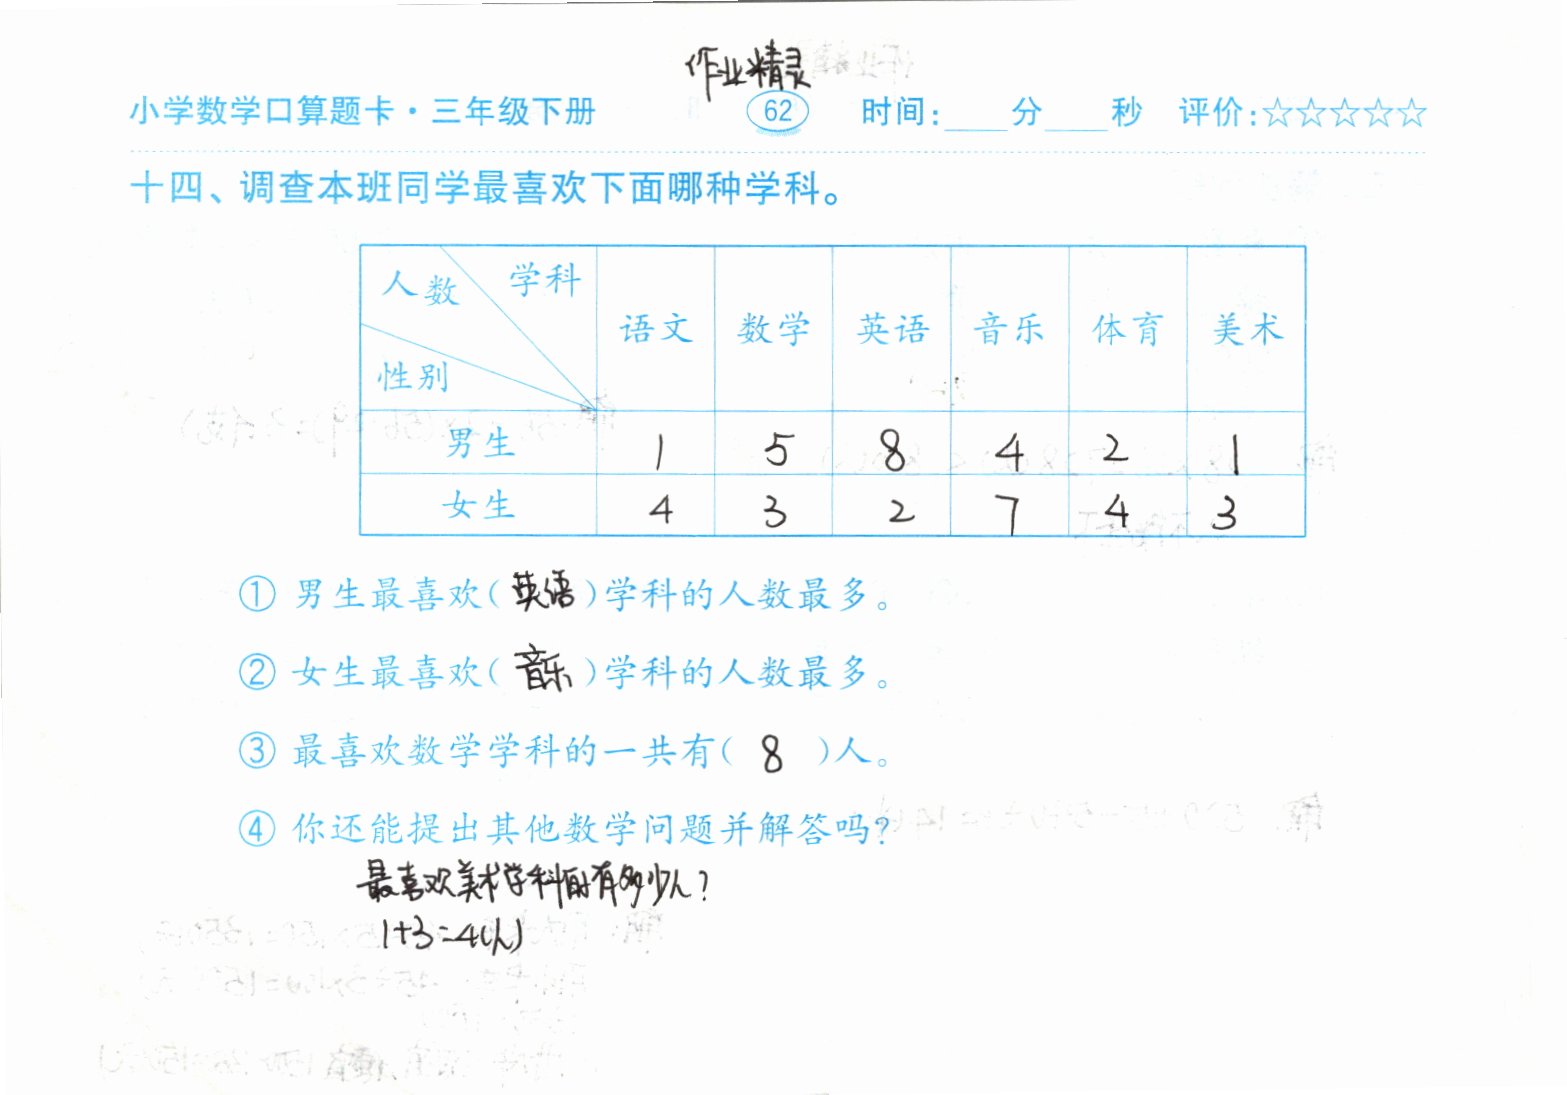 作业精灵
小学数学口算题卡·三年级下册 62 时间:____分____秒 评价:☆☆☆☆☆
十四、调查本班同学最喜欢下面哪种学科。
人数 学科 性别 语文 数学 英语 音乐 体育 美术
男生 1 5 8 4 2 1
女生 4 3 2 7 4 3
① 男生最喜欢(英语)学科的人数最多。
② 女生最喜欢(音乐)学科的人数最多。
③ 最喜欢数学学科的一共有(8)人。
④ 你还能提出其他数学问题并解答吗?
最喜欢美术学科的有多少人?
1+3=4(人)